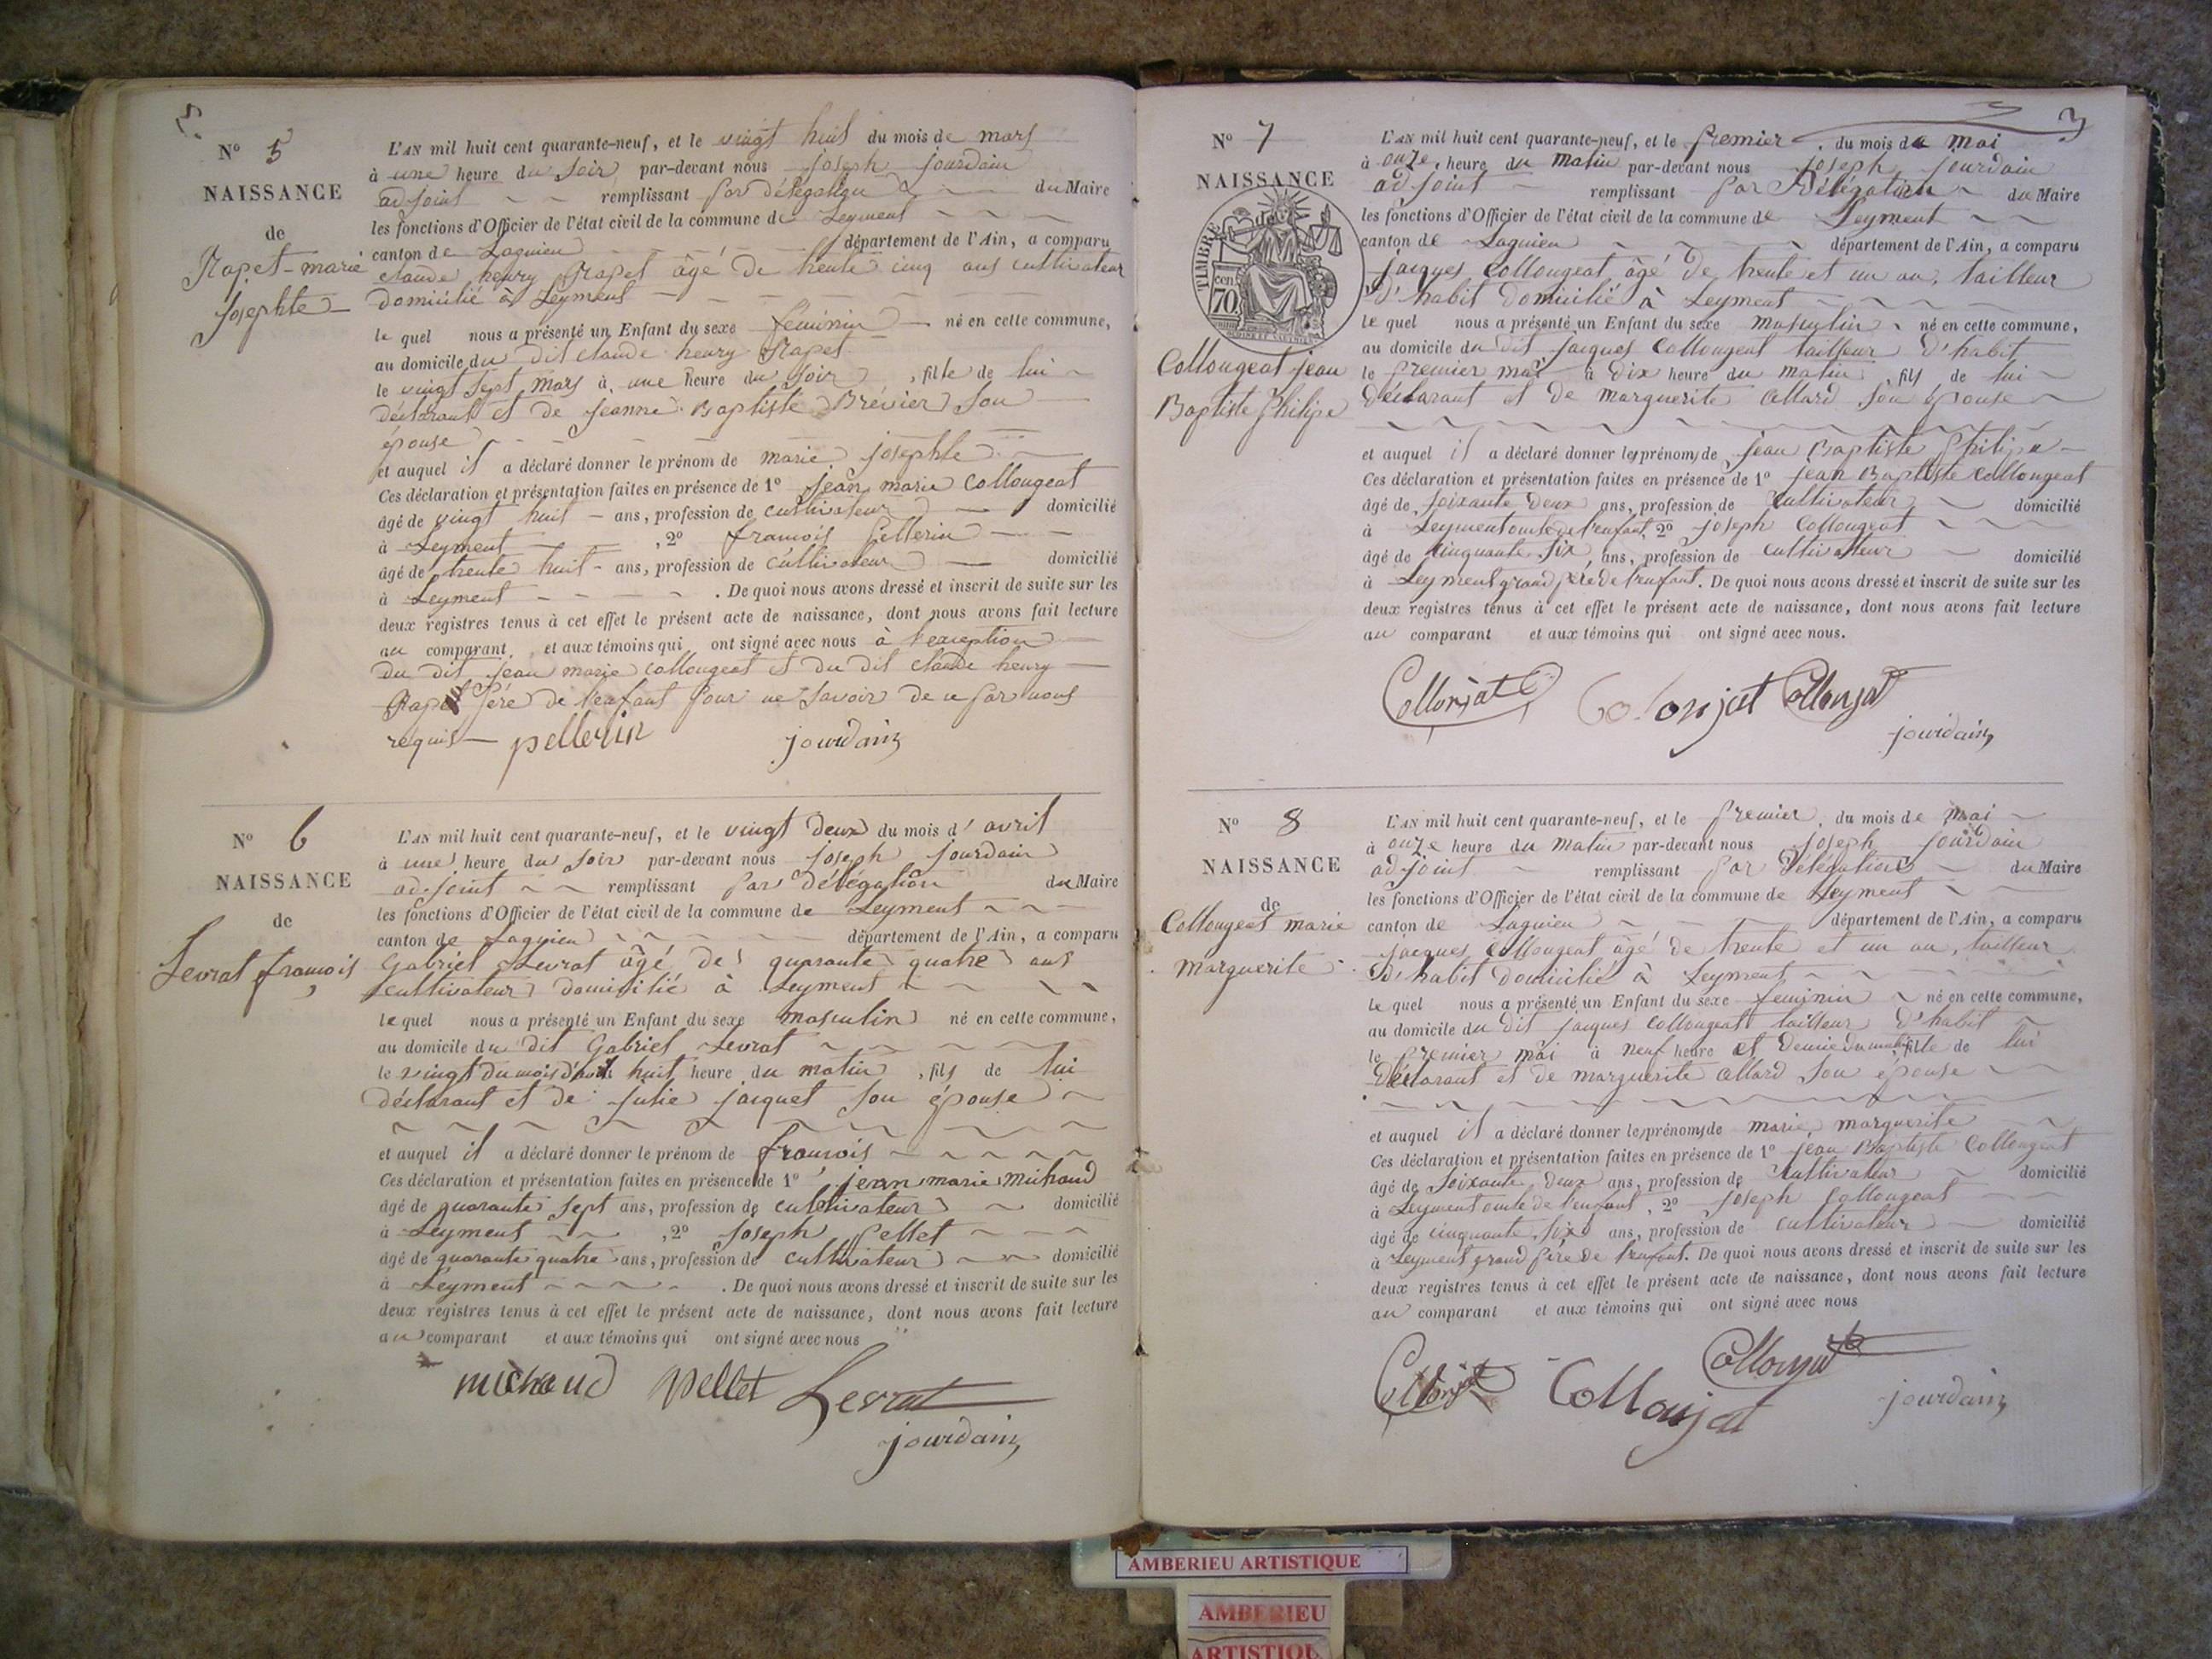 N° 5
NAISSANCE
de
Rapet-marie
Josephte
L'AN mil huit cent quarante-neuf, et le vingt huit du mois de mars
à une heure du soir par-devant nous joseph jourdain
adjoint remplissant par délégation du Maire
les fonctions d'Officier de l'état civil de la commune de Leyment
canton de Lagnieu département de l'Ain, a comparu
claude henry Rapet âgé de trente cinq ans cultivateur
domicilié à Leyment
le quel nous a présenté un Enfant du sexe féminin né en cette commune,
au domicile du dit claude henry Rapet
le vingt sept mars à une heure du soir, fille de lui
déclarant et de jeanne Baptiste Brévier son
épouse
et auquel il a déclaré donner le prénom de marie josephte
Ces déclaration et présentation faites en présence de 1° jean marie Collougeat
âgé de vingt huit ans, profession de cultivateur domicilié
à Leyment, 2° francois Pellerin
âgé de trente huit ans, profession de cultivateur domicilié
à Leyment. De quoi nous avons dressé et inscrit de suite sur les
deux registres tenus à cet effet le présent acte de naissance, dont nous avons fait lecture
au comparant et aux témoins qui ont signé avec nous à l'exception
du dit jean marie collougeat et du dit claude henry
Rapet père de l'enfant pour ne savoir de ce par nous
requis pellerin jourdain
N° 6
NAISSANCE
de
Levrat francois
L'AN mil huit cent quarante-neuf, et le vingt deux du mois d'avril
à une heure du soir par-devant nous joseph jourdain
adjoint remplissant par délégation du Maire
les fonctions d'Officier de l'état civil de la commune de Leyment
canton de Lagnieu département de l'Ain, a comparu
Gabriel Levrat âgé de quarante quatre ans
cultivateur domicilié à Leyment
le quel nous a présenté un Enfant du sexe masculin né en cette commune,
au domicile du dit Gabriel Levrat
le vingt du mois d'avril huit heure du matin, fils de lui
déclarant et de julie jacquet son épouse
et auquel il a déclaré donner le prénom de francois
Ces déclaration et présentation faites en présence de 1° jean marie Michaud
âgé de quarante sept ans, profession de cultivateur domicilié
à Leyment, 2° joseph Pellet
âgé de quarante quatre ans, profession de cultivateur domicilié
à Leyment. De quoi nous avons dressé et inscrit de suite sur les
deux registres tenus à cet effet le présent acte de naissance, dont nous avons fait lecture
au comparant et aux témoins qui ont signé avec nous
michaud pellet Levrat
jourdain
3
N° 7
NAISSANCE
de
TIMBRE
70 cen
Collougeat jean
Baptiste Philipe
L'AN mil huit cent quarante-neuf, et le premier du mois de mai
à onze heure du matin par-devant nous joseph jourdain
adjoint remplissant par Délégation du Maire
les fonctions d'Officier de l'état civil de la commune de Leyment
canton de Lagnieu département de l'Ain, a comparu
jacques Collougeat âgé de trente et un an, tailleur
d'habit domicilié à Leyment
le quel nous a présenté un Enfant du sexe masculin né en cette commune,
au domicile du dit jacques Collougeat tailleur d'habit
le premier mai à dix heure du matin, fils de lui
déclarant et de marguerite Allard son épouse
et auquel il a déclaré donner les prénoms de jean Baptiste Philipe
Ces déclaration et présentation faites en présence de 1° jean Baptiste Collougeat
âgé de soixante deux ans, profession de cultivateur domicilié
à Leyment oncle de l'enfant, 2° joseph Collougeat
âgé de cinquante six ans, profession de cultivateur domicilié
à Leyment grand père de l'enfant. De quoi nous avons dressé et inscrit de suite sur les
deux registres tenus à cet effet le présent acte de naissance, dont nous avons fait lecture
au comparant et aux témoins qui ont signé avec nous.
Collonjat Colonjat Collonjat
jourdain
N° 8
NAISSANCE
de
Collougeat marie
marguerite
L'AN mil huit cent quarante-neuf, et le premier du mois de mai
à onze heure du matin par-devant nous joseph jourdain
adjoint remplissant par délégation du Maire
les fonctions d'Officier de l'état civil de la commune de Leyment
canton de Lagnieu département de l'Ain, a comparu
jacques Collougeat âgé de trente et un an, tailleur
d'habit domicilié à Leyment
le quel nous a présenté un Enfant du sexe feminin né en cette commune,
au domicile du dit jacques collougeat tailleur d'habit
le premier mai à neuf heure et demie du matin fille de lui
déclarant et de marguerite Allard son épouse
et auquel il a déclaré donner les prénoms de marie marguerite
Ces déclaration et présentation faites en présence de 1° jean Baptiste Collougeat
âgé de soixante deux ans, profession de cultivateur domicilié
à Leyment oncle de l'enfant, 2° joseph Collougeat
âgé de cinquante six ans, profession de cultivateur domicilié
à Leyment grand père de l'enfant. De quoi nous avons dressé et inscrit de suite sur les
deux registres tenus à cet effet le présent acte de naissance, dont nous avons fait lecture
au comparant et aux témoins qui ont signé avec nous
Collonjat Collonjat Collonjat
jourdain
AMBERIEU ARTISTIQUE
AMBERIEU
ARTISTIQU